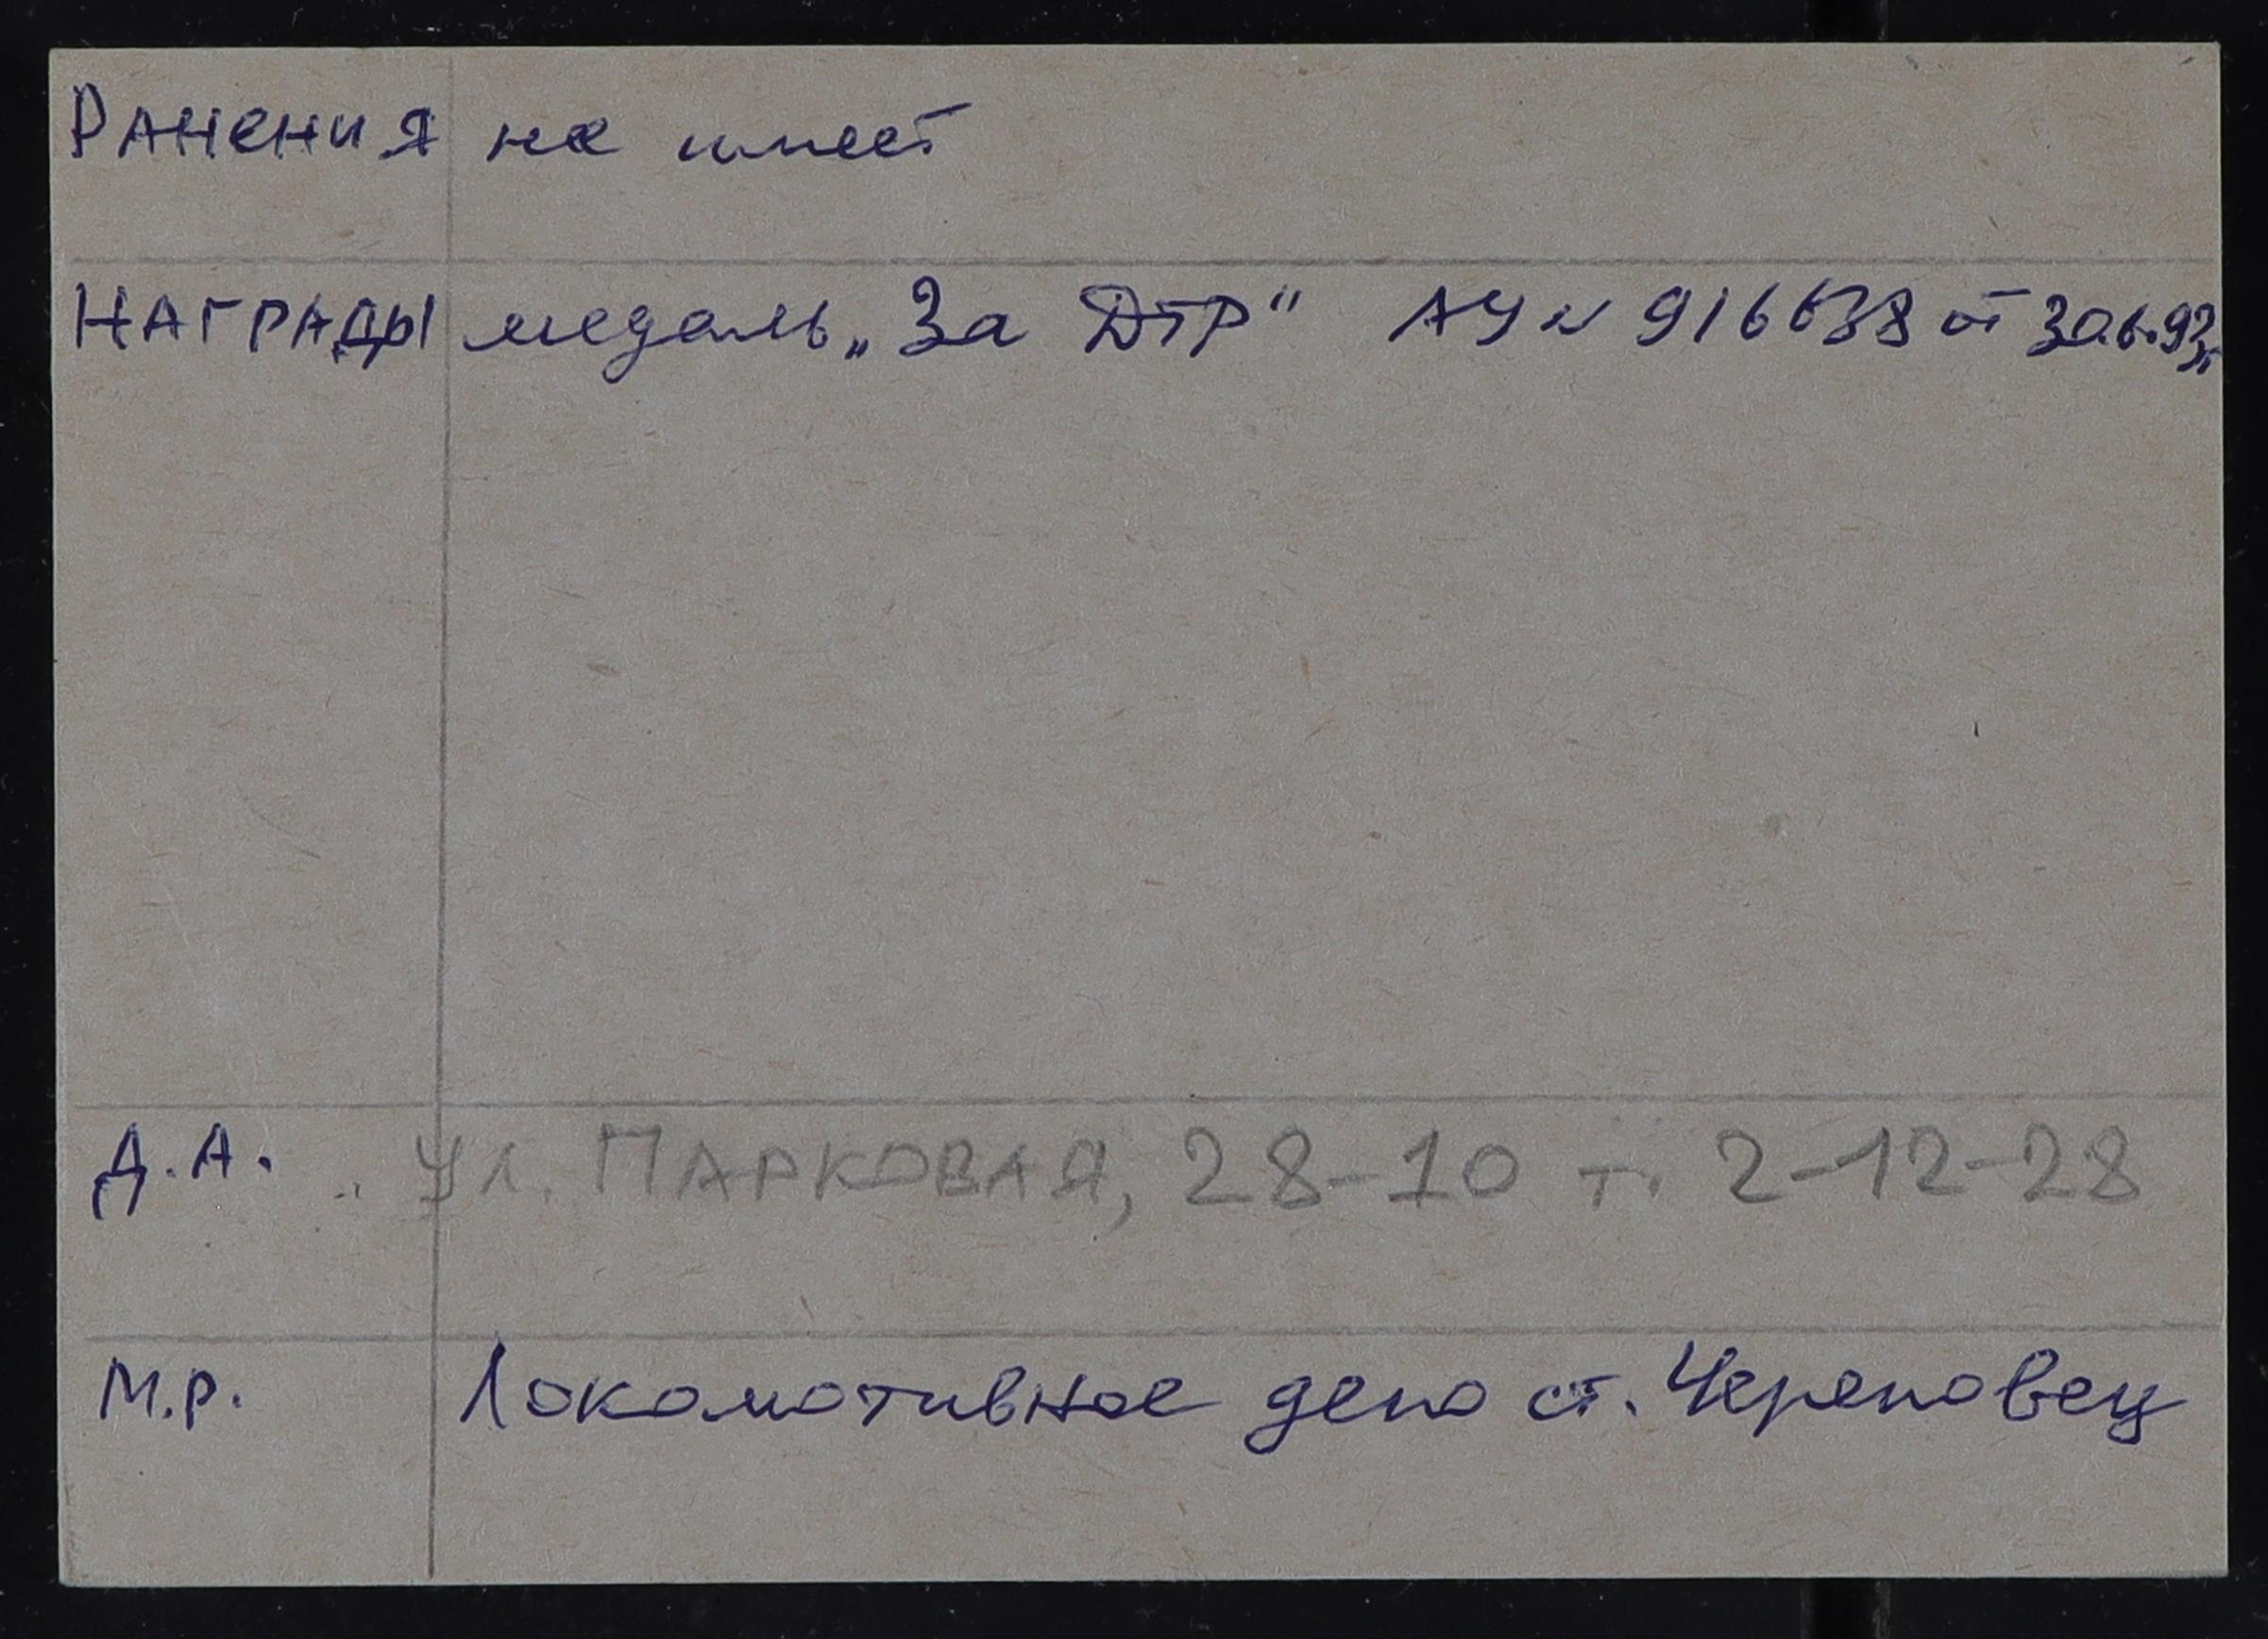 Ранения не имеет
Награды медаль „За ДТР“ АУ N 916638 от 30.6.93г.
Д.А. ул. ПАРКОВАЯ, 28-10 т. 2-12-28
М.р. Локомотивное депо ст. Череповец